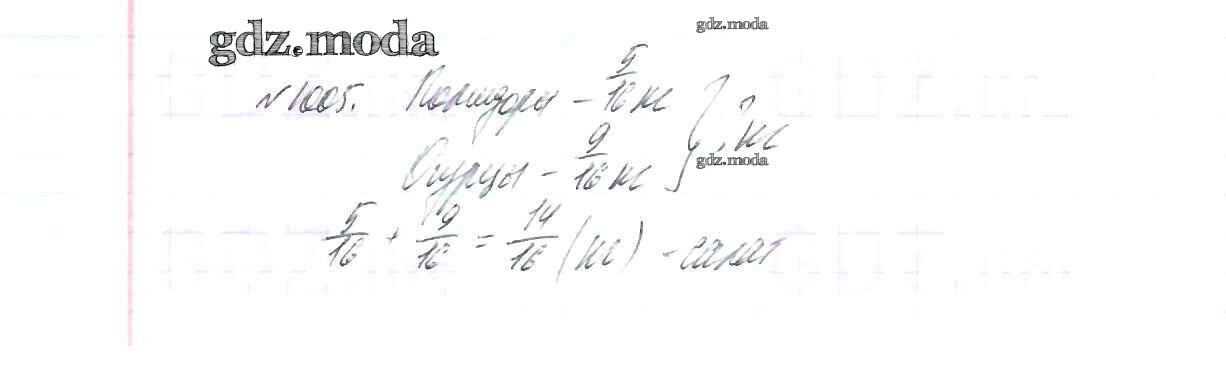 gdz.moda
gdz.moda
№1005. Помидоры – 5/16 кг } ? кг
Огурцы – 9/16 кг
gdz.moda
5/16 + 9/16 = 14/16 (кг) – салат